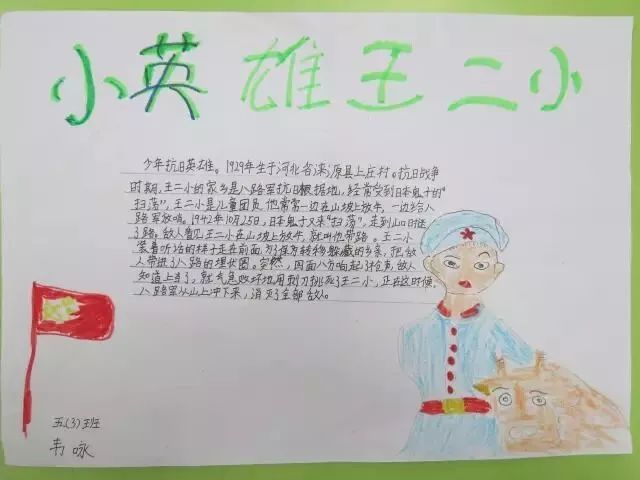 小英雄王二小
少年抗日英雄。1929年生于河北省涞源县上庄村。抗日战争
时期，王二小的家乡是八路军抗日根据地，经常受到日本鬼子的“
扫荡”，王二小是儿童团员，他常常一边在山坡上放牛，一边给八
路军放哨。1942年10月25日，日本鬼子又来“扫荡”，走到山口时迷
了路。敌人看见王二小在山坡上放牛，就叫他带路。王二小
装着听话的样子走在前面，为了保卫转移躲藏的乡亲，把敌
人带进了八路的埋伏圈。突然，四面八方响起了枪声，敌人
知道上当了，就气急败坏地用刺刀挑死了王二小，正在这时候，
八路军从山上冲下来，消灭了全部敌人。
五(3)班
韦咏